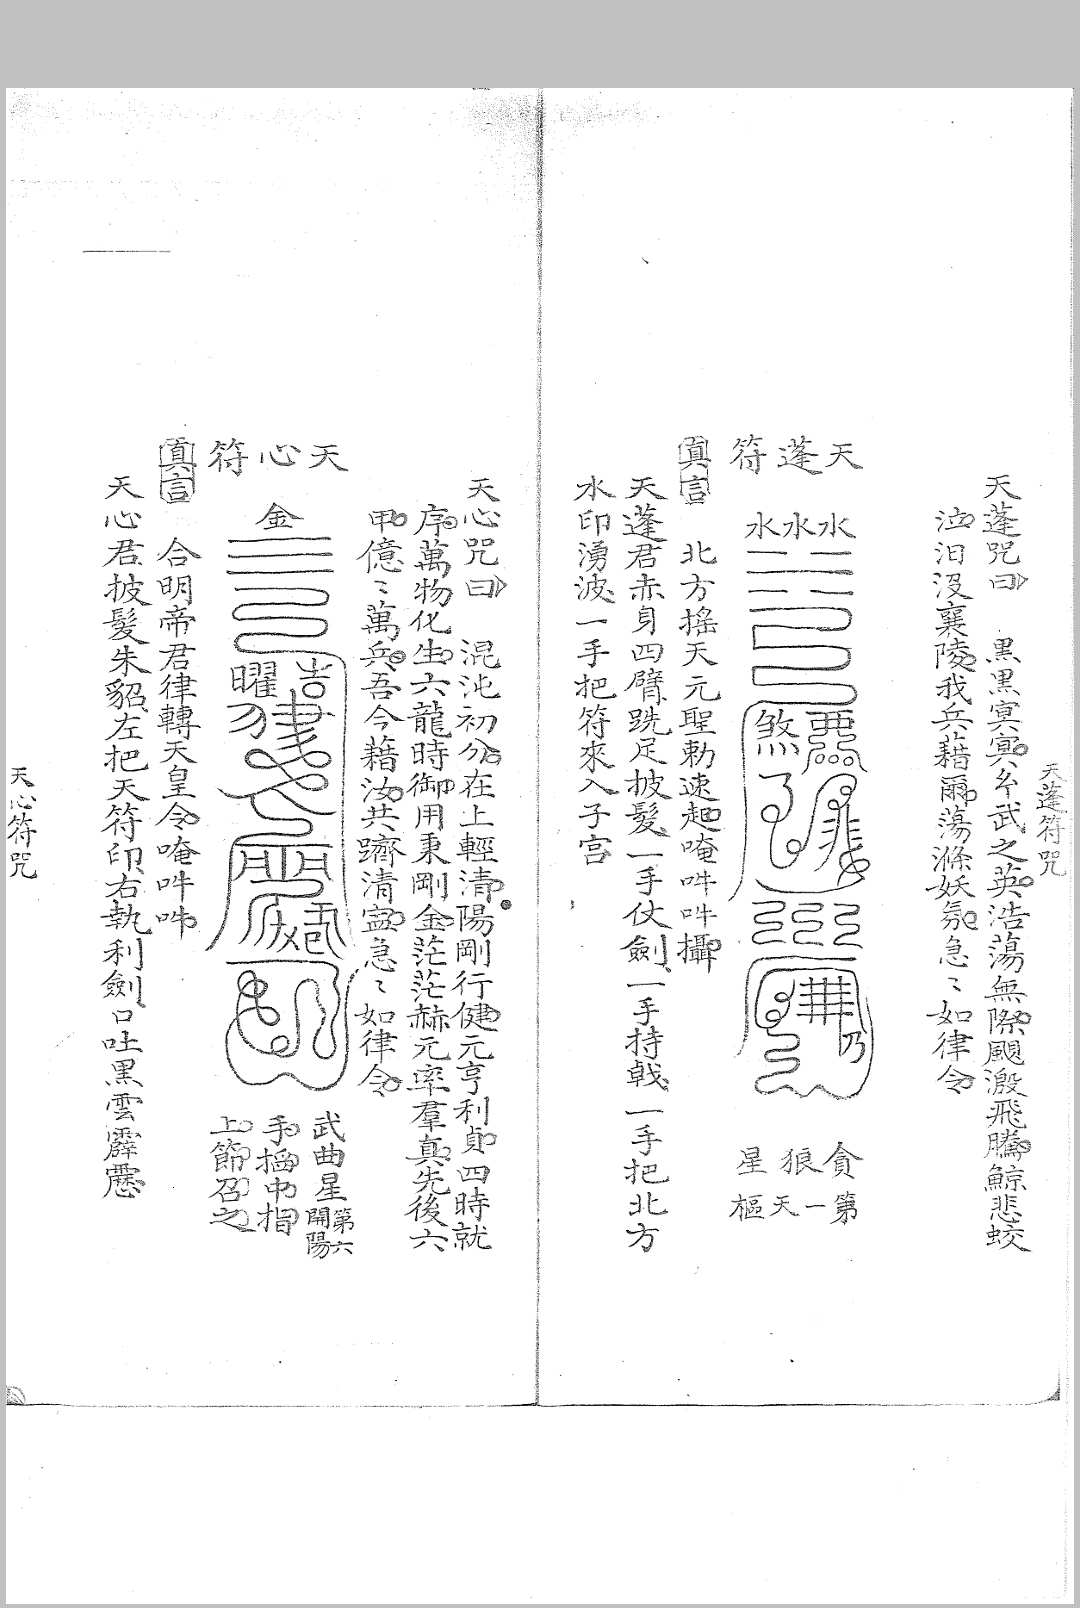 天蓬符咒
天蓬咒曰　黑黑冥冥玄武之英浩蕩無際颶激飛騰鯨悲蛟
泣汨沒襄陵我兵藉爾蕩滌妖氛急〻如律令
天蓬符
水水水
煞
乃
貪狼星
第一天樞
真言　北方搖天元聖勅速起唵吽吽攝
天蓬君赤身四臂跣足披髮一手仗劍一手持戟一手把北方
水印湧波一手把符來入子宮
天心咒曰　混沌初分在上輕清陽剛行健元亨利貞四時就
序萬物化生六龍時御用秉剛金茫茫赫元率羣真先後六
甲億〻萬兵吾今藉汝共躋清寍急〻如律令
天心符
金
曜
武曲星第六開陽
手掐中指
上節召之
真言　合明帝君律轉天皇令唵吽吽
天心君披髮朱貂左把天符印右執利劍口吐黑雲霹靂
天心符咒